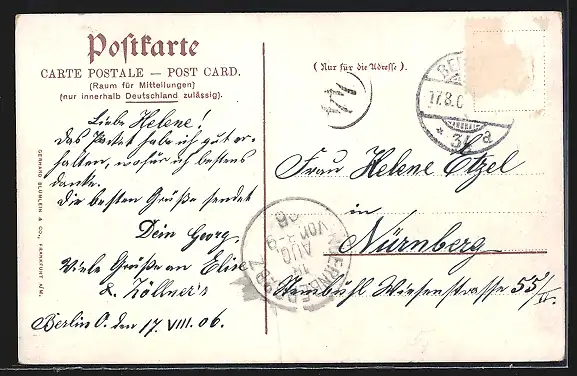 Postkarte
CARTE POSTALE — POST CARD.
(Raum für Mitteilungen)
(nur innerhalb Deutschland zulässig).
Liebe Helene!
Das Packet habe ich gut er-
halten, wofür ich bestens
danke.
Die besten Grüße sendet
Dein Georg.
Viele Grüße an Elise
u. Zöllner's
Berlin O. den 17. VIII. 06.
GERHARD BLÜMLEIN & CO., FRANKFURT A/M.
(Nur für die Adresse).
17.8.0
Frau Helene Etzel
in
Nürnberg
Wiesenstrasse 55/II.
NUERNBERG
AUG
VOR